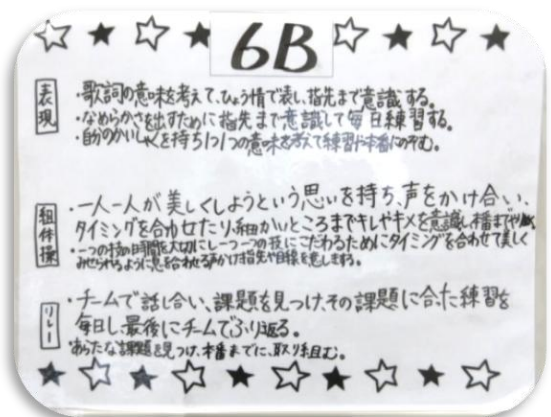 6B
表現
・歌詞の意味を考えて、ひょう情で表し、指先まで意識する。
・なめらかさを出すために指先まで意識して毎日練習する。
・自分のかいしゃくを持ち1つ1つの意味を考えて練習や本番にのぞむ。
組体操
・一人一人が美しくしようという思いを持ち、声をかけ合い、
タイミングを合わせたり、細かいところまでキレやキメを意識し、本番までやりぬく
・一つの技の時間を大切にし一つ一つの技にこだわるためにタイミングを合わせて美しく
みせられるように息を合わせる声かけ指先や目線を意しきする。
リレー
・チームで話し合い、課題を見つけ、その課題に合た練習を
毎日し、最後にチームでふり返る。
・あらたな課題を見つけ、本番までに、取り組む。